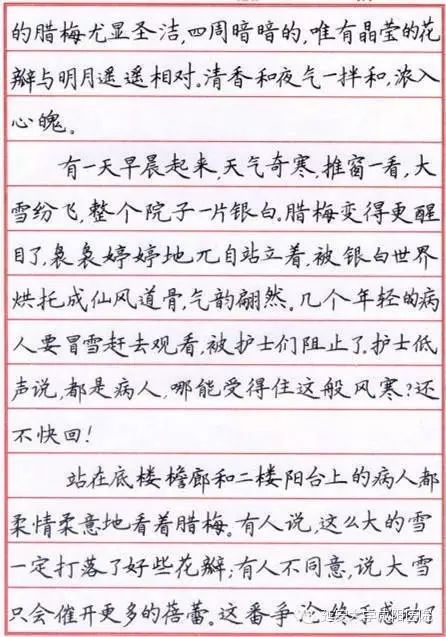 的腊梅尤显圣洁,四周暗暗的,唯有晶莹的花
瓣与明月遥遥相对。清香和夜气一拌和,浓入
心魄。
有一天早晨起来,天气奇寒,推窗一看,大
雪纷飞,整个院子一片银白。腊梅变得更醒
目了,袅袅婷婷地兀自站立着,被银白世界
烘托成仙风道骨,气韵翩然。几个年轻的病
人要冒雪赶去观看,被护士们阻止了。护士低
声说,都是病人,哪能受得住这般风寒?还
不快回!
站在底楼檐廊和二楼阳台上的病人都
柔情柔意地看着腊梅。有人说,这么大的雪
一定打落了好些花瓣;有人不同意,说大雪
只会催开更多的蓓蕾。这番争论